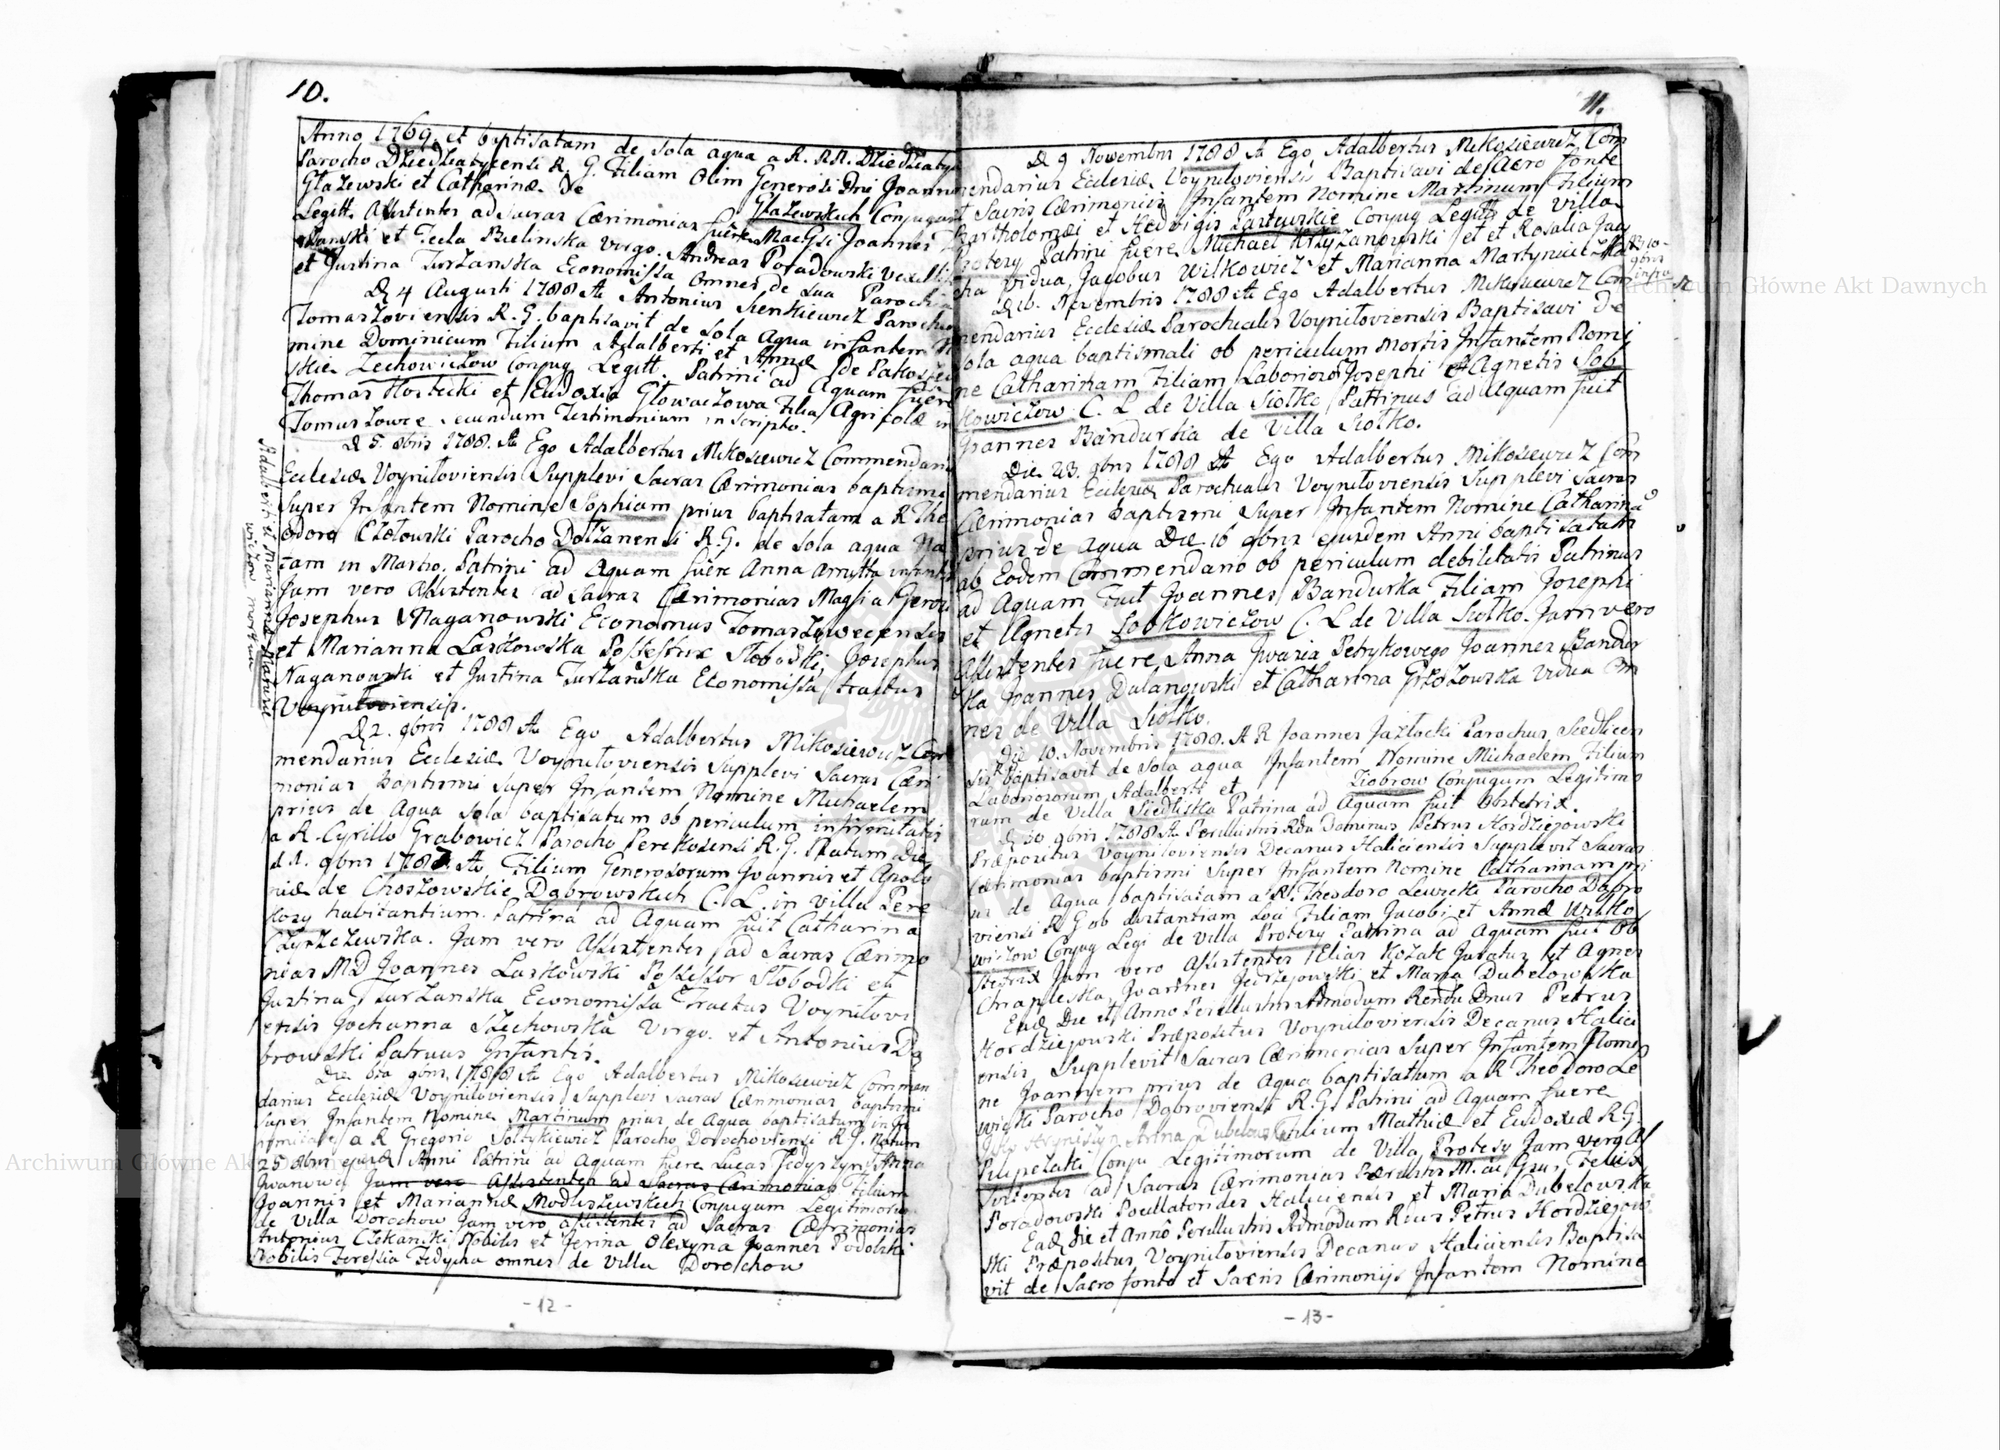 10.
Anno 1769. et baptisatam de sola aqua a R. RR. Dziedziatyc
Parocho Dziedziatycensi R. G. Filiam Olim Generosi Dni Joann
Głażewski et Catharinæ de
Głażewskich Conjugum
Legitt. Assistentes ad sacras Cærimonias fuêre MacGsi Joannes
et Tecla Bielinska Virgo. Andreas Poradowski Vexilli
et Justina Turżanska Economissa omnes de sua Parochi
D. 4 Augusti 1788 A Antonius Sienkiewicz Parochus
Tomaszoviensis R. G. baptisavit de sola Aqua infantem N
mine Dominicum Filium Adalberti et Annæ de
skie Zechowiczow Conjug Legitt. Patrini ad Aquam fuêre
Thomas Hostecki et Eudoxia Głowaczowa Filia Agricolæ in
Tomaszowce secundum Testimonium inscripto.
D 5. 8bris 1788. A Ego Adalbertus Mikosiewicz Commendari
Ecclesiæ Voyniloviensis Supplevi Sacras Cærimonias baptismi
super Infantem Nomine Sophiam prius baptisatam a R The
odoro Czołowski Parocho Dołżanensi R. G. de sola aqua Na
tam in Martio. Patrini ad Aquam fuêre Anna
Jam vero Assistentes ad sacras Cærimonias
Josephus Naganowski Economus Tomaszowecensis
et Marianna Laskowska Possessrix Słobodki, Josephus
Naganowski et Justina Turżanska Economissa tractus
Voyniloviensis.
Adalberti et Mariannæ
D 2. 9bris 1788 A Ego Adalbertus Mikosiewicz Com
mendarius Ecclesiæ Voyniloviensis Supplevi Sacras Cæri
monias Baptismi super Infantem Nomine Michaelem
prius de Aqua sola baptisatum ob periculum infirmitatis
a R. Cyrillo Grabowicz Parocho Perekosensi R. G. Natum die
d 1. 9bris 1787 A Filium Generosorum Joannis et Apolo
niæ de Choszłowskie Dąbrowskich C. L. in villa Pere
kosy habitantium. Patrina ad Aquam fuit Catharina
Czyrzczewska. Jam vero Assistentes ad Sacras Cærimo
nias MD Joannes Laskowski Possessor Słobodki et
Justina Turżanska Economissa Tractus Voynilovi
ensis Johanna Szechowska Virgo. et Antonius Dą
browski Patruus Infantis.
Die 9bris, 1788 A Ego Adalbertus Mikosiewicz Commen
darius Ecclesiæ Voyniloviensis Supplevi sacras Cærimonias baptismi
super Infantem Nomine Martinum prius de Aqua baptisatum in
a R Gregorio Sołtykiewicz Parocho Dorochoviensi R. G. Natum
25 8bris ejusd Anni Patrini ad Aquam fuere Lucas Fedyszyn Anna
Jwanowa Jam vero Assistentes ad Sacras Cærimonias Filium
Joannis et Mariannæ Modliszewskich Conjugum Legitimorum
de Villa Dorochow Jam vero assistentes ad Sacras Cærimonias
Antonius Czekanski Nobilis et Jerina Olexyna Joannes Podolski
Nobilis Teressia Fedycha omnes de Villa Dorochow
- 12 -
11.
D 9 Novembris 1788 A Ego Adalbertus Mikosiewicz Com
mendarius Ecclesiæ Voyniloviensis Baptisavi de Sacro Fonte
et Sacris Cærimoniis Infantem Nomine Martinum Filium
Bartholomæi et Hedvigis Conjug Legitt de Villa
Protesy Patrini fuere Michael Krzyżanowski et et Rosalia
Vidua, Jacobus Wilkowicz et Marianna
D 16. Novembris 1788 A Ego Adalbertus Mikosiewicz Com
mendarius Ecclesiæ Parochialis Voyniloviensis Baptisavi De
sola aqua baptismali ob periculum mortis Infantem Nomi
ne Catharinam Filiam Laboriosor Josephi et Agnetis Sob
kowiczow C. L de Villa Siołko Patrinus ad Aquam fuit
Joannes Bandurka de Villa Siołko.
Die 23. 9bris 1788 A Ego Adalbertus Mikosiewicz Com
mendarius Ecclesiæ Parochialis Voyniloviensis Supplevi Sacras
Cærimonias Baptismi super Infantem Nomine Catharina
prius de Aqua Die 16 9bris ejusdem Anni baptisatam
ab Eodem Commendario ob periculum debilitatis Patrinus
ad Aquam Fuit Joannes Bandurka Filiam Josephi
et Agnetis Sobkowiczow C. L de Villa Siołko. Jam vero
Assistentes fuere, Anna Petrykowego Joannes Bandur
ka Joannes Dulanowski et Catharina Vidua Om
nes de Villa Siołko.
Die 10. Novembris 1788. A R Joannes Jazłocki Parochus Siedlicen
sis baptisavit de sola aqua Infantem Nomine Michaelem Filium
Laboriosorum Adalberti et Ziobrow Conjugum Legitimo
rum de Villa Siedliska Patrina ad Aquam fuit Obstetrix.
D 30 9bris 1788 A Perillustris Rdus Dominus Petrus Hordziejowski
Præpositus Voyniloviensis Decanus Haliciensis Supplevit Sacras
Cærimonias baptismi Super Infantem Nomine Catharinam pri
us de Aqua baptisatam a R. Theodoro Lewicki Parocho Dąbro
viensi R G ob distantiam Loci Filiam Jacobi et Annæ Witko
wiczow Conjug Legi de Villa Protesy Patrina ad Aquam fuit Ob
stetrix Jam vero Assistentes Elias Kożak Juratus et Agnes
Chapleska, Joannes Jędrzejowski et Maria Dubelowska
Ead Die et Anno Perillustris Admodum Rendus Dnus Petrus
Hordziejowski Præpositus Voyniloviensis Decanus Halici
ensis Supplevit Sacras Cærimonias Super Infantem Nomi
ne Joannem prius de Aqua baptisatum a R Theodoro Le
wicki Parocho Dąbroviensi R. G. Patrini ad Aquam fuere
Anna Dubelowska Filium Mathiæ et Eudoxiæ R. G.
Conju Legitimorum de Villa Protesy Jam vero As
sistentes ad Sacras Cærimonias Felix
Poradowski Haliciensis et Maria Dubelowska
Ead die et Anno Perillustris Admodum Rdus Petrus Hordziejow
ski Præpositus Voyniloviensis Decanus Haliciensis Baptisa
vit de Sacro fonte et Sacris Cærimoniis Infantem Nomine
- 13 -
Archiwum Główne Akt Dawnych
Archiwum Główne Akt Dawnych